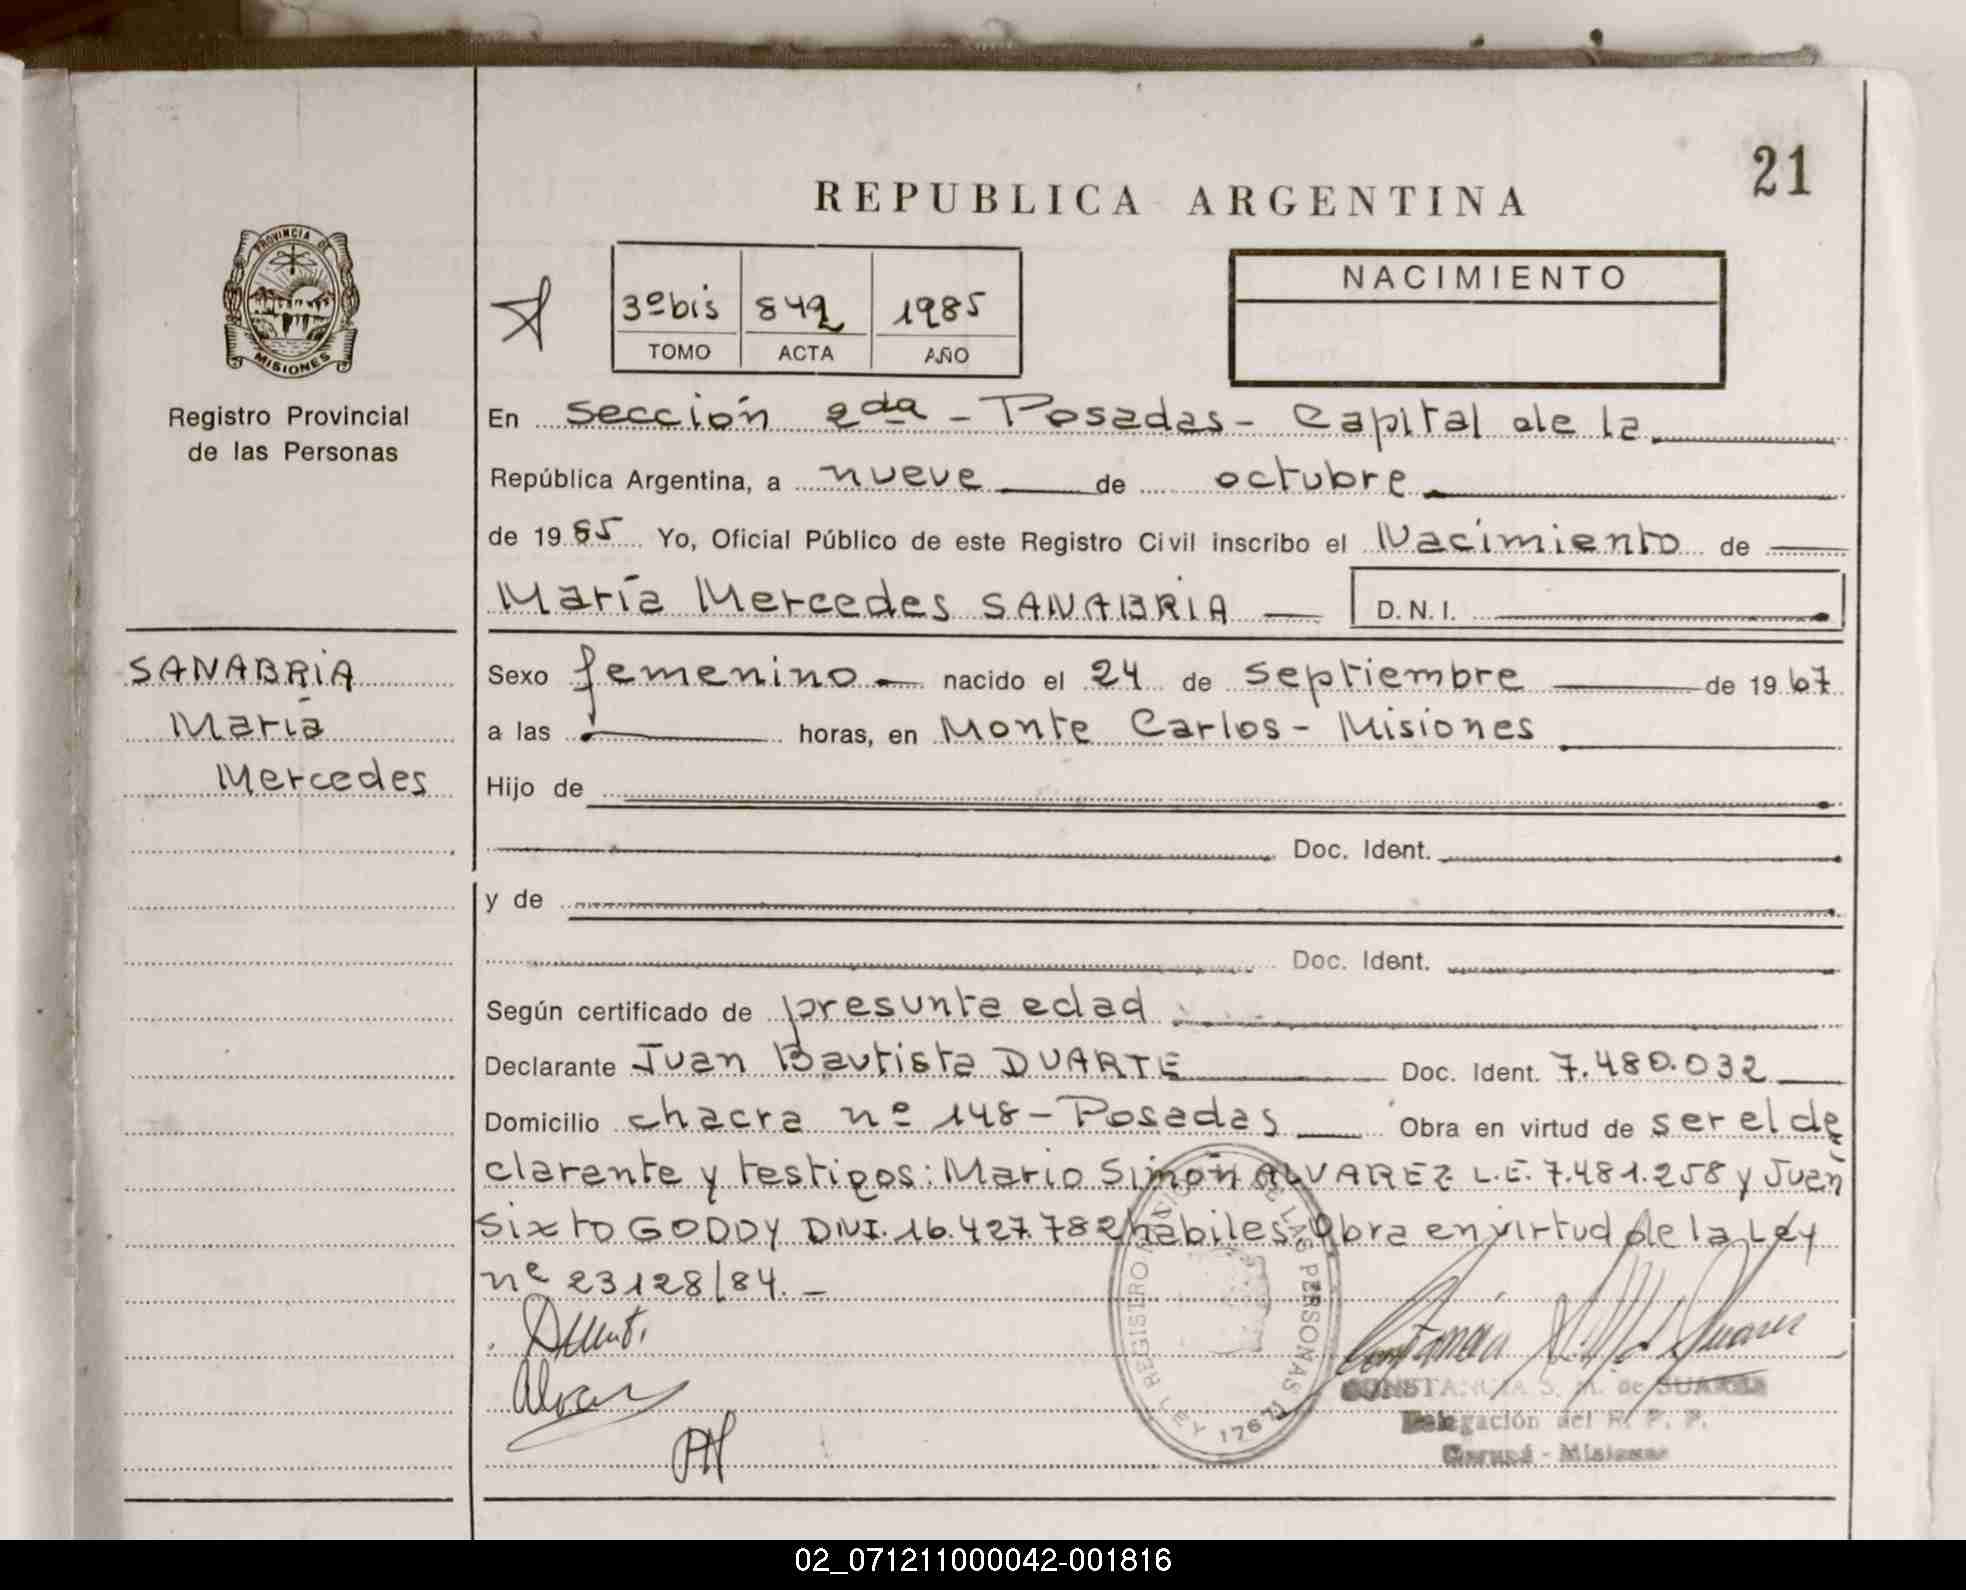 21
REPUBLICA ARGENTINA
PROVINCIA DE
MISIONES
Registro Provincial
de las Personas
3º bis 849 1985
TOMO ACTA AÑO
NACIMIENTO
En Sección 2da - Posadas - Capital de la
República Argentina, a nueve de octubre
de 1985 Yo, Oficial Público de este Registro Civil inscribo el Nacimiento de
María Mercedes SANABRIA D.N.I.
SANABRIA
María
Mercedes
Sexo femenino nacido el 24 de septiembre de 1967
a las horas, en Monte Carlos - Misiones
Hijo de
Doc. Ident.
y de
Doc. Ident.
Según certificado de presunta edad
Declarante Juan Bautista DUARTE Doc. Ident. 7.480.032
Domicilio chacra nº 148 - Posadas Obra en virtud de ser el de
clarante y testigos: Mario Simón ALVAREZ L.E. 7.481.258 y Juan
Sixto GODOY DNI. 16.427.782 hábiles. Obra en virtud de la Ley
nº 23128/84. -
REGISTRO DE LAS PERSONAS
LEY 17671
CONSTANCIA S. M. de SUAREZ
Delegación del R. P. P.
Garupá - Misiones
02_071211000042-001816